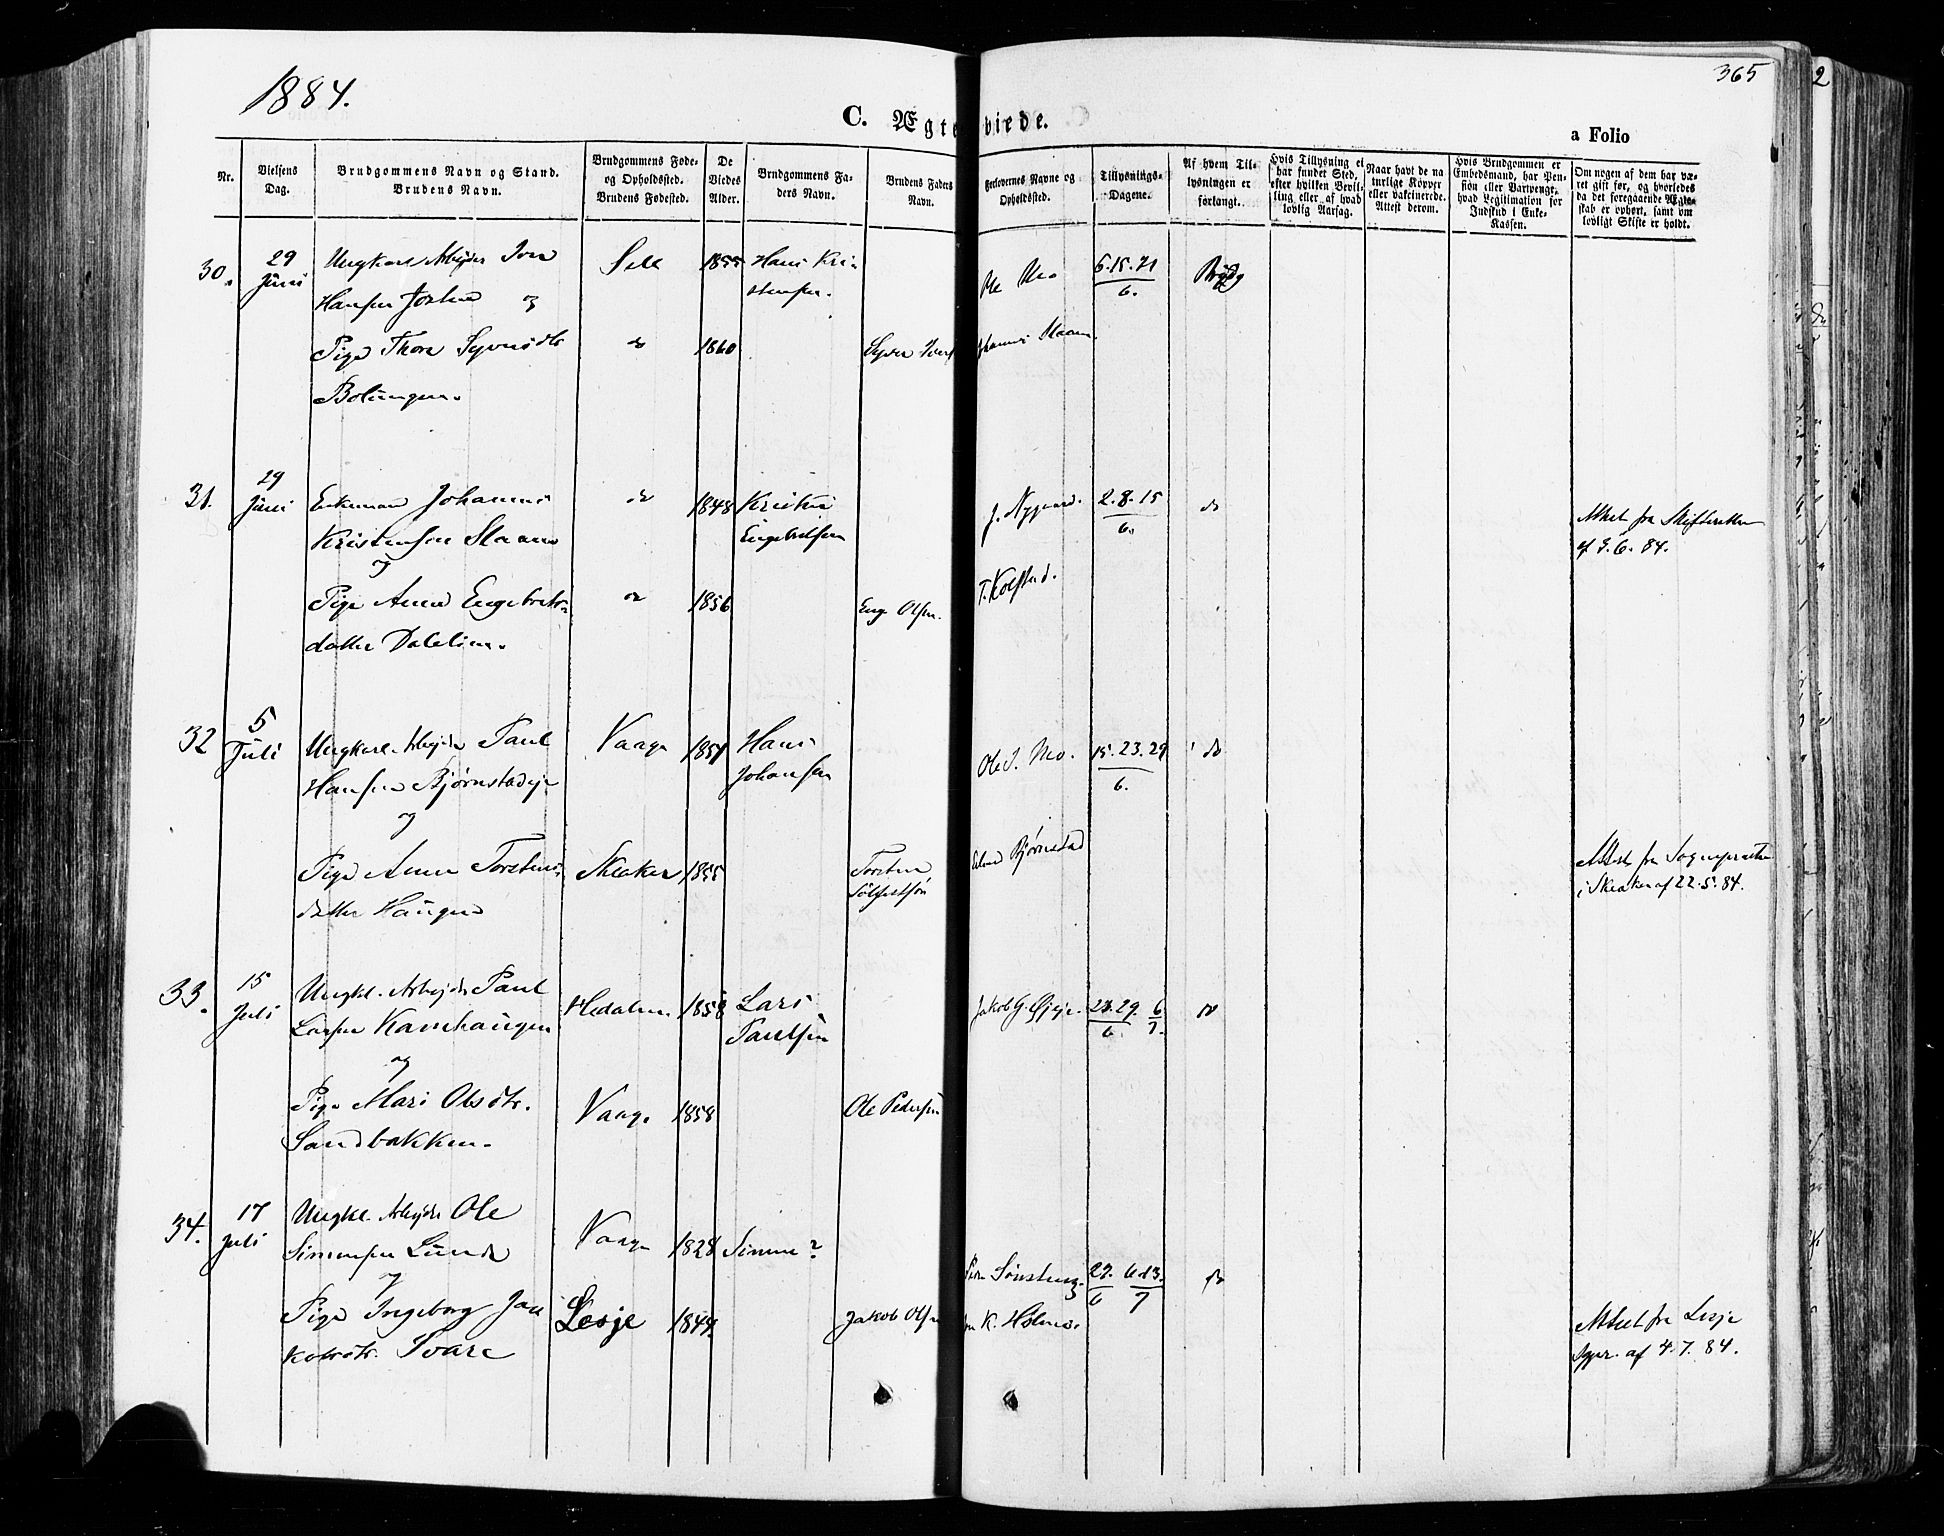 1884.
365
2
C. Ægte viede.
a Folio
Nr.
Vielsens Dag.
Brudgommens Navn og Stand. Brudens Navn.
Brudgommens Føde- og Opholdssted. Brudens Fødested.
De Viedes Alder.
Brudgommens Faders Navn.
Brudens Faders Navn.
Forlovernes Navne og Opholdssted.
Tillysnings-Dagene.
Af hvem Tillysningen er forlangt.
Hvis Tillysning ei har fundet Sted, efter hvilken Bevilling eller af hvad lovlig Aarsag.
Naar havt de naturlige Kopper eller vakcinerede. Attest derom.
Hvis Brudgommen er Embedsmand, har Pension eller Vartpenge, hvad Legitimation for Indskud i Enke-Kassen.
Om nogen af dem har været gift før, og hvorledes da det foregaaende Ægteskab er ophørt, samt om lovligt Skifte er holdt.
30. 29 Juni Ungkarl Arbejder Iver Sell 1855 Hans Kri- Ole Mo 6.15.21
Hansen og stensen. 6.
Pige Thora Syversdtr do 1860 Syver
31. 29 Juni Enkemand Johannes do 1848 Kristen J. Nygaard. 2.8.15 do Attest fra Skifteretten
Kristensen Slaan Engebretsen 6. af 3.6.84.
og
Pige Anne Engebrets- do 1856 Eng. Olsen. T. Kolstad.
datter Dalelien.
32 5 Juli Ungkarl. Arbejder Paul Vaage Hans Ole J. Mo. 15.23.29 do
Hansen Bjørnstadeje Johansen 6.
og
Pige Anne Torstens- Skeaker 1855 Torsten Bjørnstad Attest fra Sognepresten
datter Haugen i Skeaker af 22.5.84.
33. 15 Juli Ungkl. Arbejder Paul Hedalen 1858 Lars Jakob G. 29. 6 do
Larsen Paulsen 6 7.
og
Pige Mari Olsdtr. Vaage 1858 Ole Pedersen
Sandbakken.
34. 17 Juli Ungkl. Arbejder Ole Vaage 1828 Simen? 29. 6.13. do
Simensen Lunde 6 7
og
Pige Ingeborg Ja- Lesje Jakob Olsen K. Holmen. Attest fra Lesje
kobsdtr. Svare Sgpr. af 4.7.84.